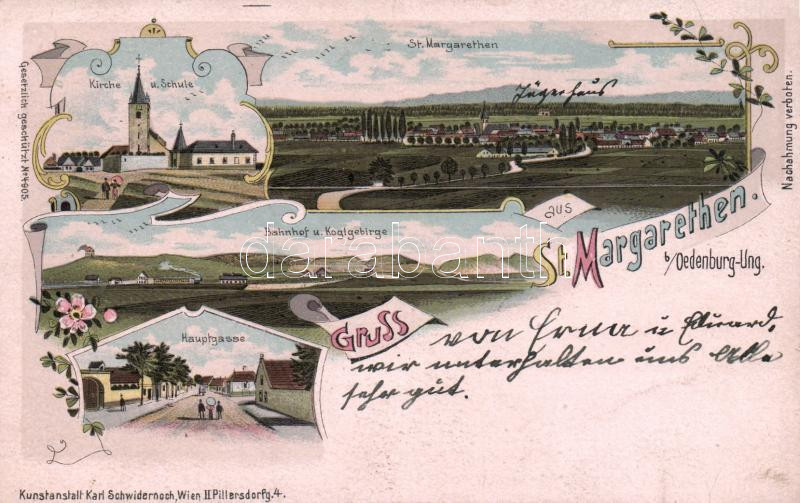 St. Margarethen
Kirche u. Schule
Jägerhaus
Gesetzlich geschützt № 4905.
Nachahmung verboten.
Bahnhof u. Koglgebirge
Gruss
aus
St. Margarethen.
b/Oedenburg-Ung.
Hauptgasse
von Erna u Eduard,
wir unterhalten uns Alle
sehr gut.
Kunstanstalt Karl Schwidernoch, Wien II Pillersdorfg. 4.
darabanth